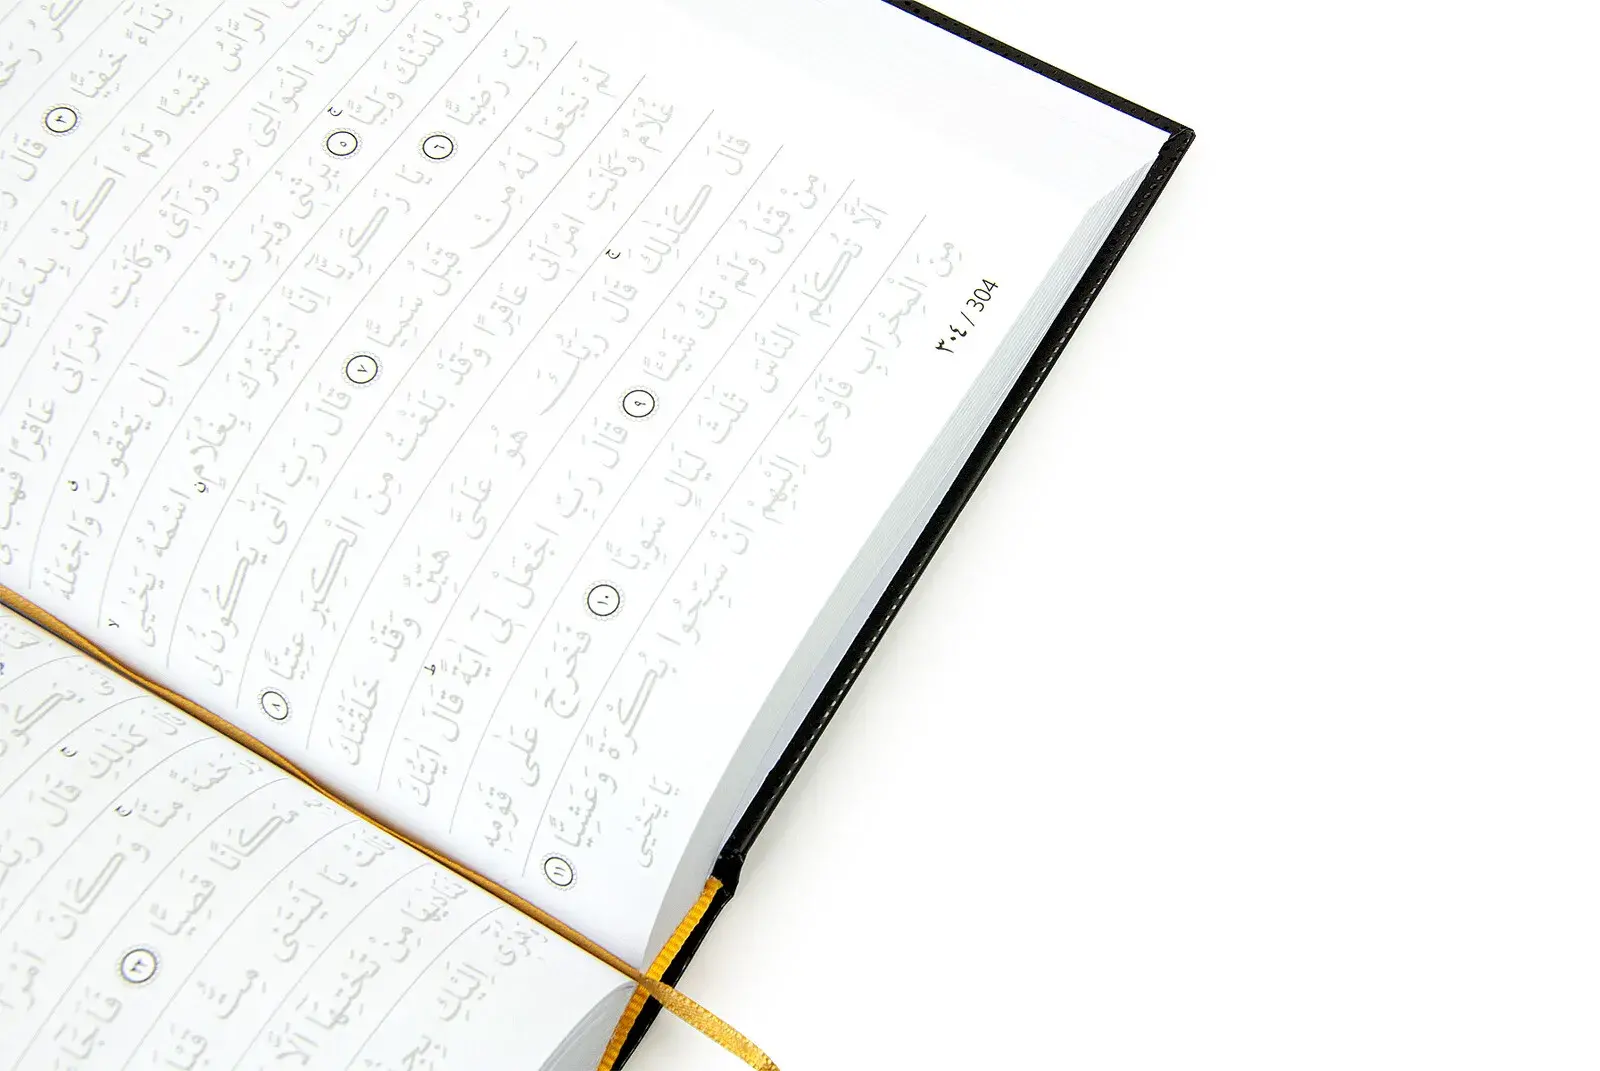 نِدَاءً خَفِيًّا ٣ قَالَ
الرَّأْسُ شَيْبًا وَلَمْ اَكُنْ بِدُعَائِكَ
خِفْتُ الْمَوَالِىَ مِنْ وَرَاءِى وَكَانَتِ امْرَاَتِى عَاقِرًا فَهَبْ لِى
مِنْ لَدُنْكَ وَلِيًّا ۚ ٥ يَرِثُنِى وَيَرِثُ مِنْ اٰلِ يَعْقُوبَ وَاجْعَلْهُ
رَبِّ رَضِيًّا ٦ يَا زَكَرِيَّا اِنَّا نُبَشِّرُكَ بِغُلَامٍ اسْمُهُ يَحْيٰى
لَمْ نَجْعَلْ لَهُ مِنْ قَبْلُ سَمِيًّا ٧ قَالَ رَبِّ اَنّٰى يَكُونُ لِى
غُلَامٌ وَكَانَتِ امْرَاَتِى عَاقِرًا وَقَدْ بَلَغْتُ مِنَ الْكِبَرِ عِتِيًّا ٨
قَالَ كَذٰلِكَ ۚ قَالَ رَبُّكَ هُوَ عَلَىَّ هَيِّنٌ وَقَدْ خَلَقْتُكَ
مِنْ قَبْلُ وَلَمْ تَكُ شَيْئًا ٩ قَالَ رَبِّ اجْعَلْ لِى اٰيَةً ط قَالَ اٰيَتُكَ
اَلَّا تُكَلِّمَ النَّاسَ ثَلٰثَ لَيَالٍ سَوِيًّا ١٠ فَخَرَجَ عَلٰى قَوْمِهِ
مِنَ الْمِحْرَابِ فَاَوْحٰى اِلَيْهِمْ اَنْ سَبِّحُوا بُكْرَةً وَعَشِيًّا ١١
يَا يَحْيٰى
٣٠٤ / 304
قَالَ كَذٰلِكِ ۚ قَالَ
مِنَّا ۚ وَكَانَ
مَكَانًا قَصِيًّا ٢٢
يَا لَيْتَنِى مِتُّ
مِنْ تَحْتِهَا اَلَّا
اِلَيْكِ